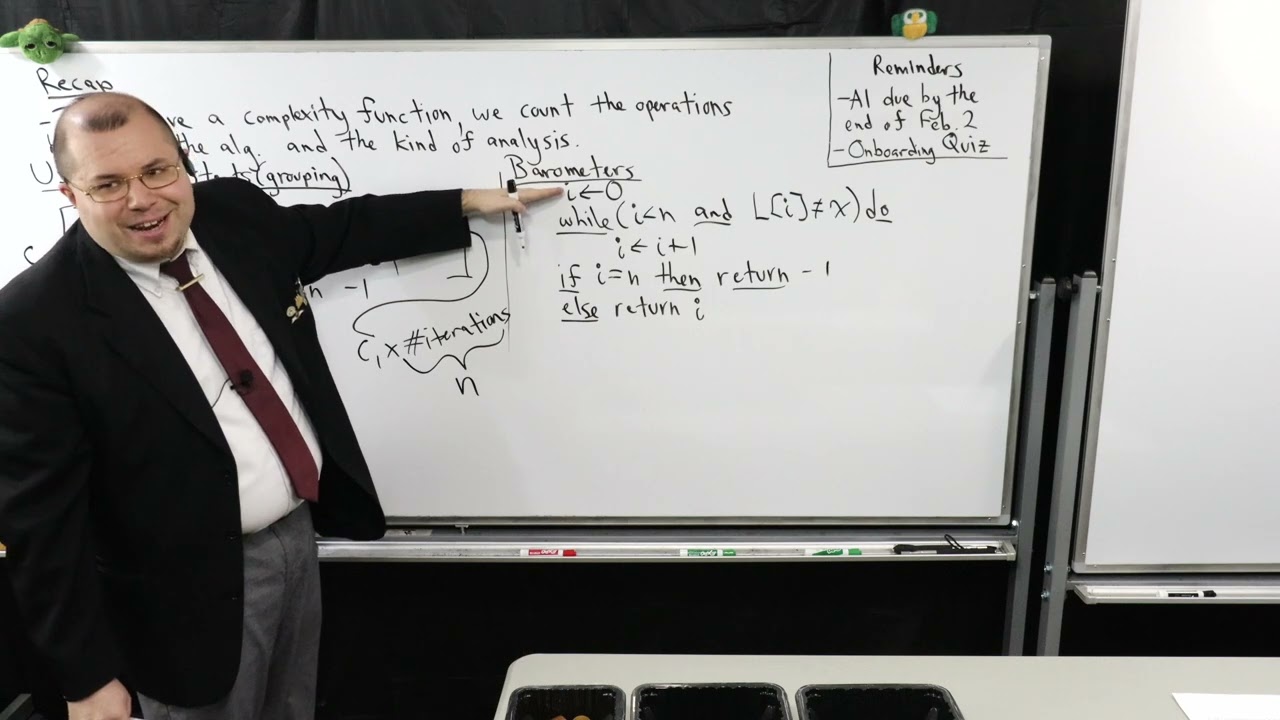 Recap
- a complexity function, we count the operations
the alg. and the kind of analysis.
U (grouping)
n -1
C₁ x #iterations
n
Barometers
i ← 0
while (i<n and L[i] ≠ x) do
i ← i+1
if i=n then return -1
else return i
Reminders
-A1 due by the
end of Feb. 2
-Onboarding Quiz